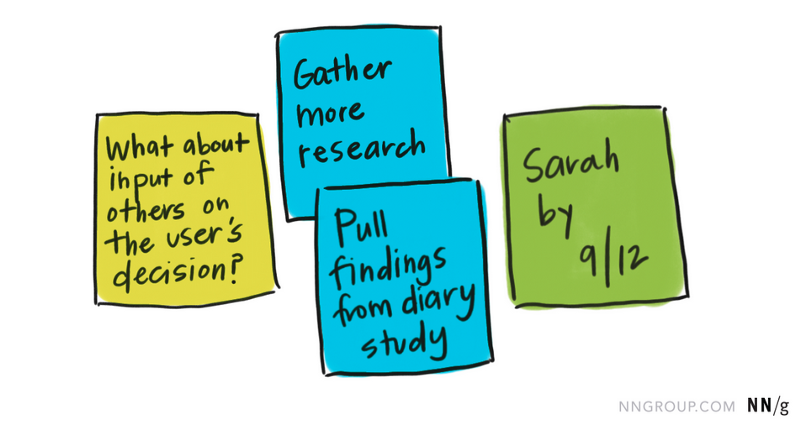 What about
input of
others on
the user's
decision?
Gather
more
research
Pull
findings
from diary
study
Sarah
by
9/12
NNGROUP.COM NN/g